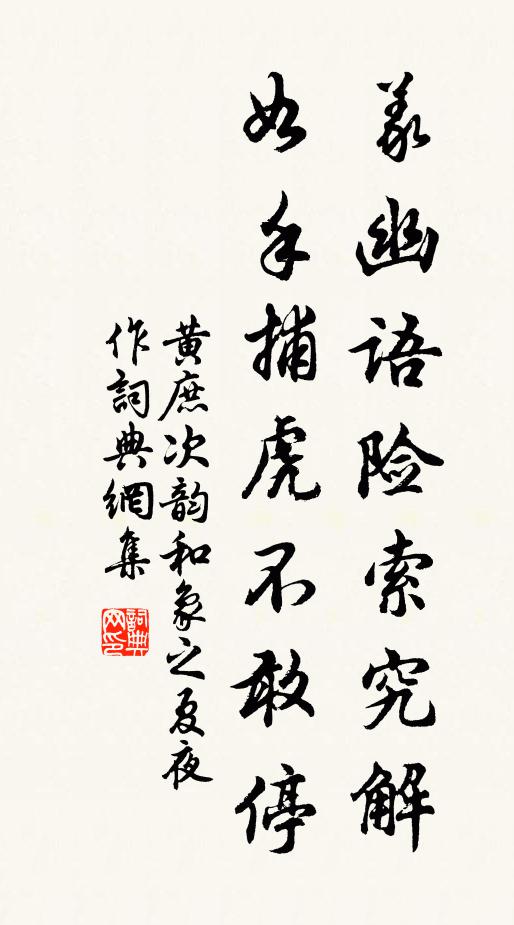 义幽语险索究解
如手捕虎不敢停
黄庶次韵和象之夏夜
作词典網集
詞典网印